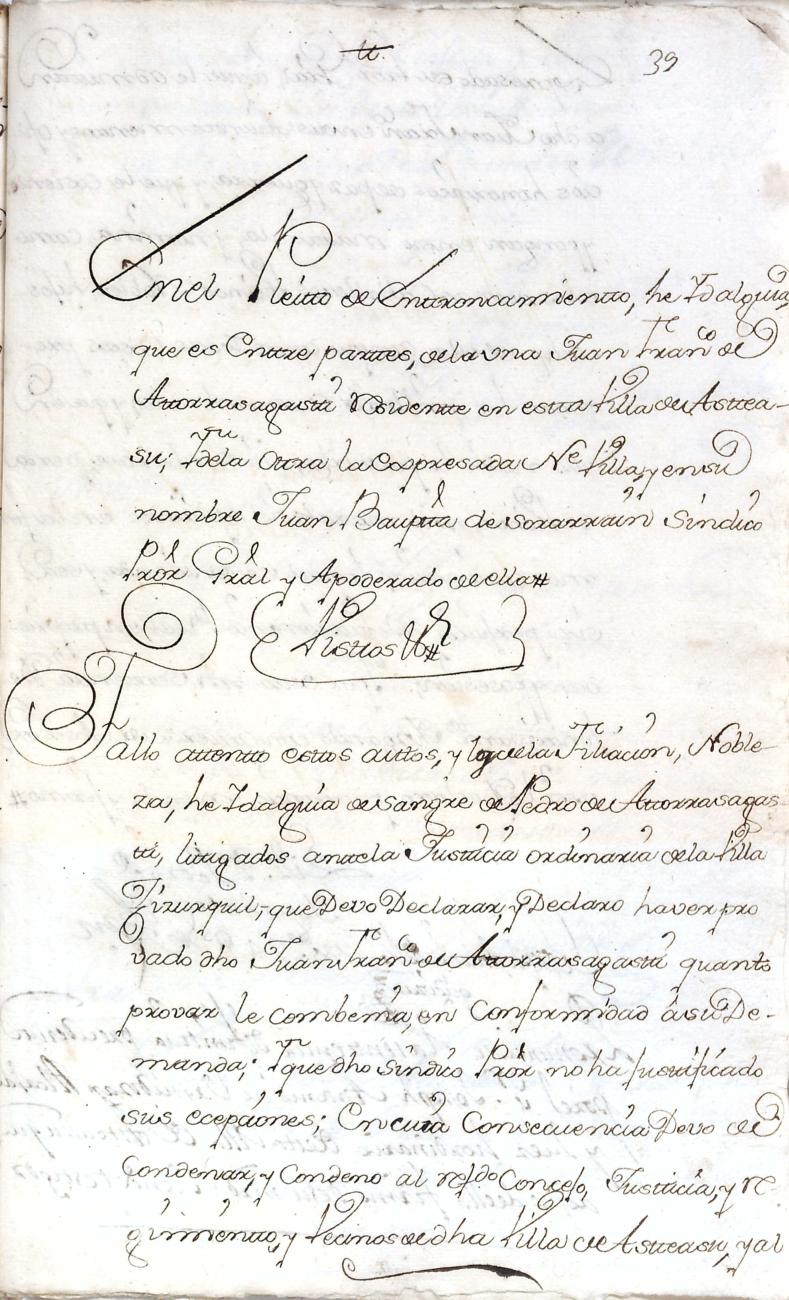 tt.
39
Enel Pleitto de Enttroncamientto, he Ydalguia,
que es Enttre parttes, de la una Juan Fran.co de
Attorrasagasti Residentte en estta Villa de Asttea-
su; Y de la Ottra la Expresada N.e Villa, y en su
nombre Juan Bauptta de Sorarrain Sindico
Prôr Grâl y Apoderado de ella#
Vistos &#
Fallo attentto estos auttos, y los de la Filiacion, Noble-
za, he Ydalguia de sangre de Pedro de Attorrasagas-
ti, litigados antte la Justicia ordinaria de la Villa
Zizurquil, que Devo Declarar, y Declaro haver pro
vado dho Juan Fran.co de Attorrasagasti quanto
provar le combenia, en Conformidad â su De-
manda; Y que dho Sindico Prôr no ha justificado
sus ecepciones; En cuia Consecuencia Devo de
Condenar, y Condeno al refdo Concejo, Justicia, y Re-
gimientto, y Vecinos de dha Villa de Astteasu, y al